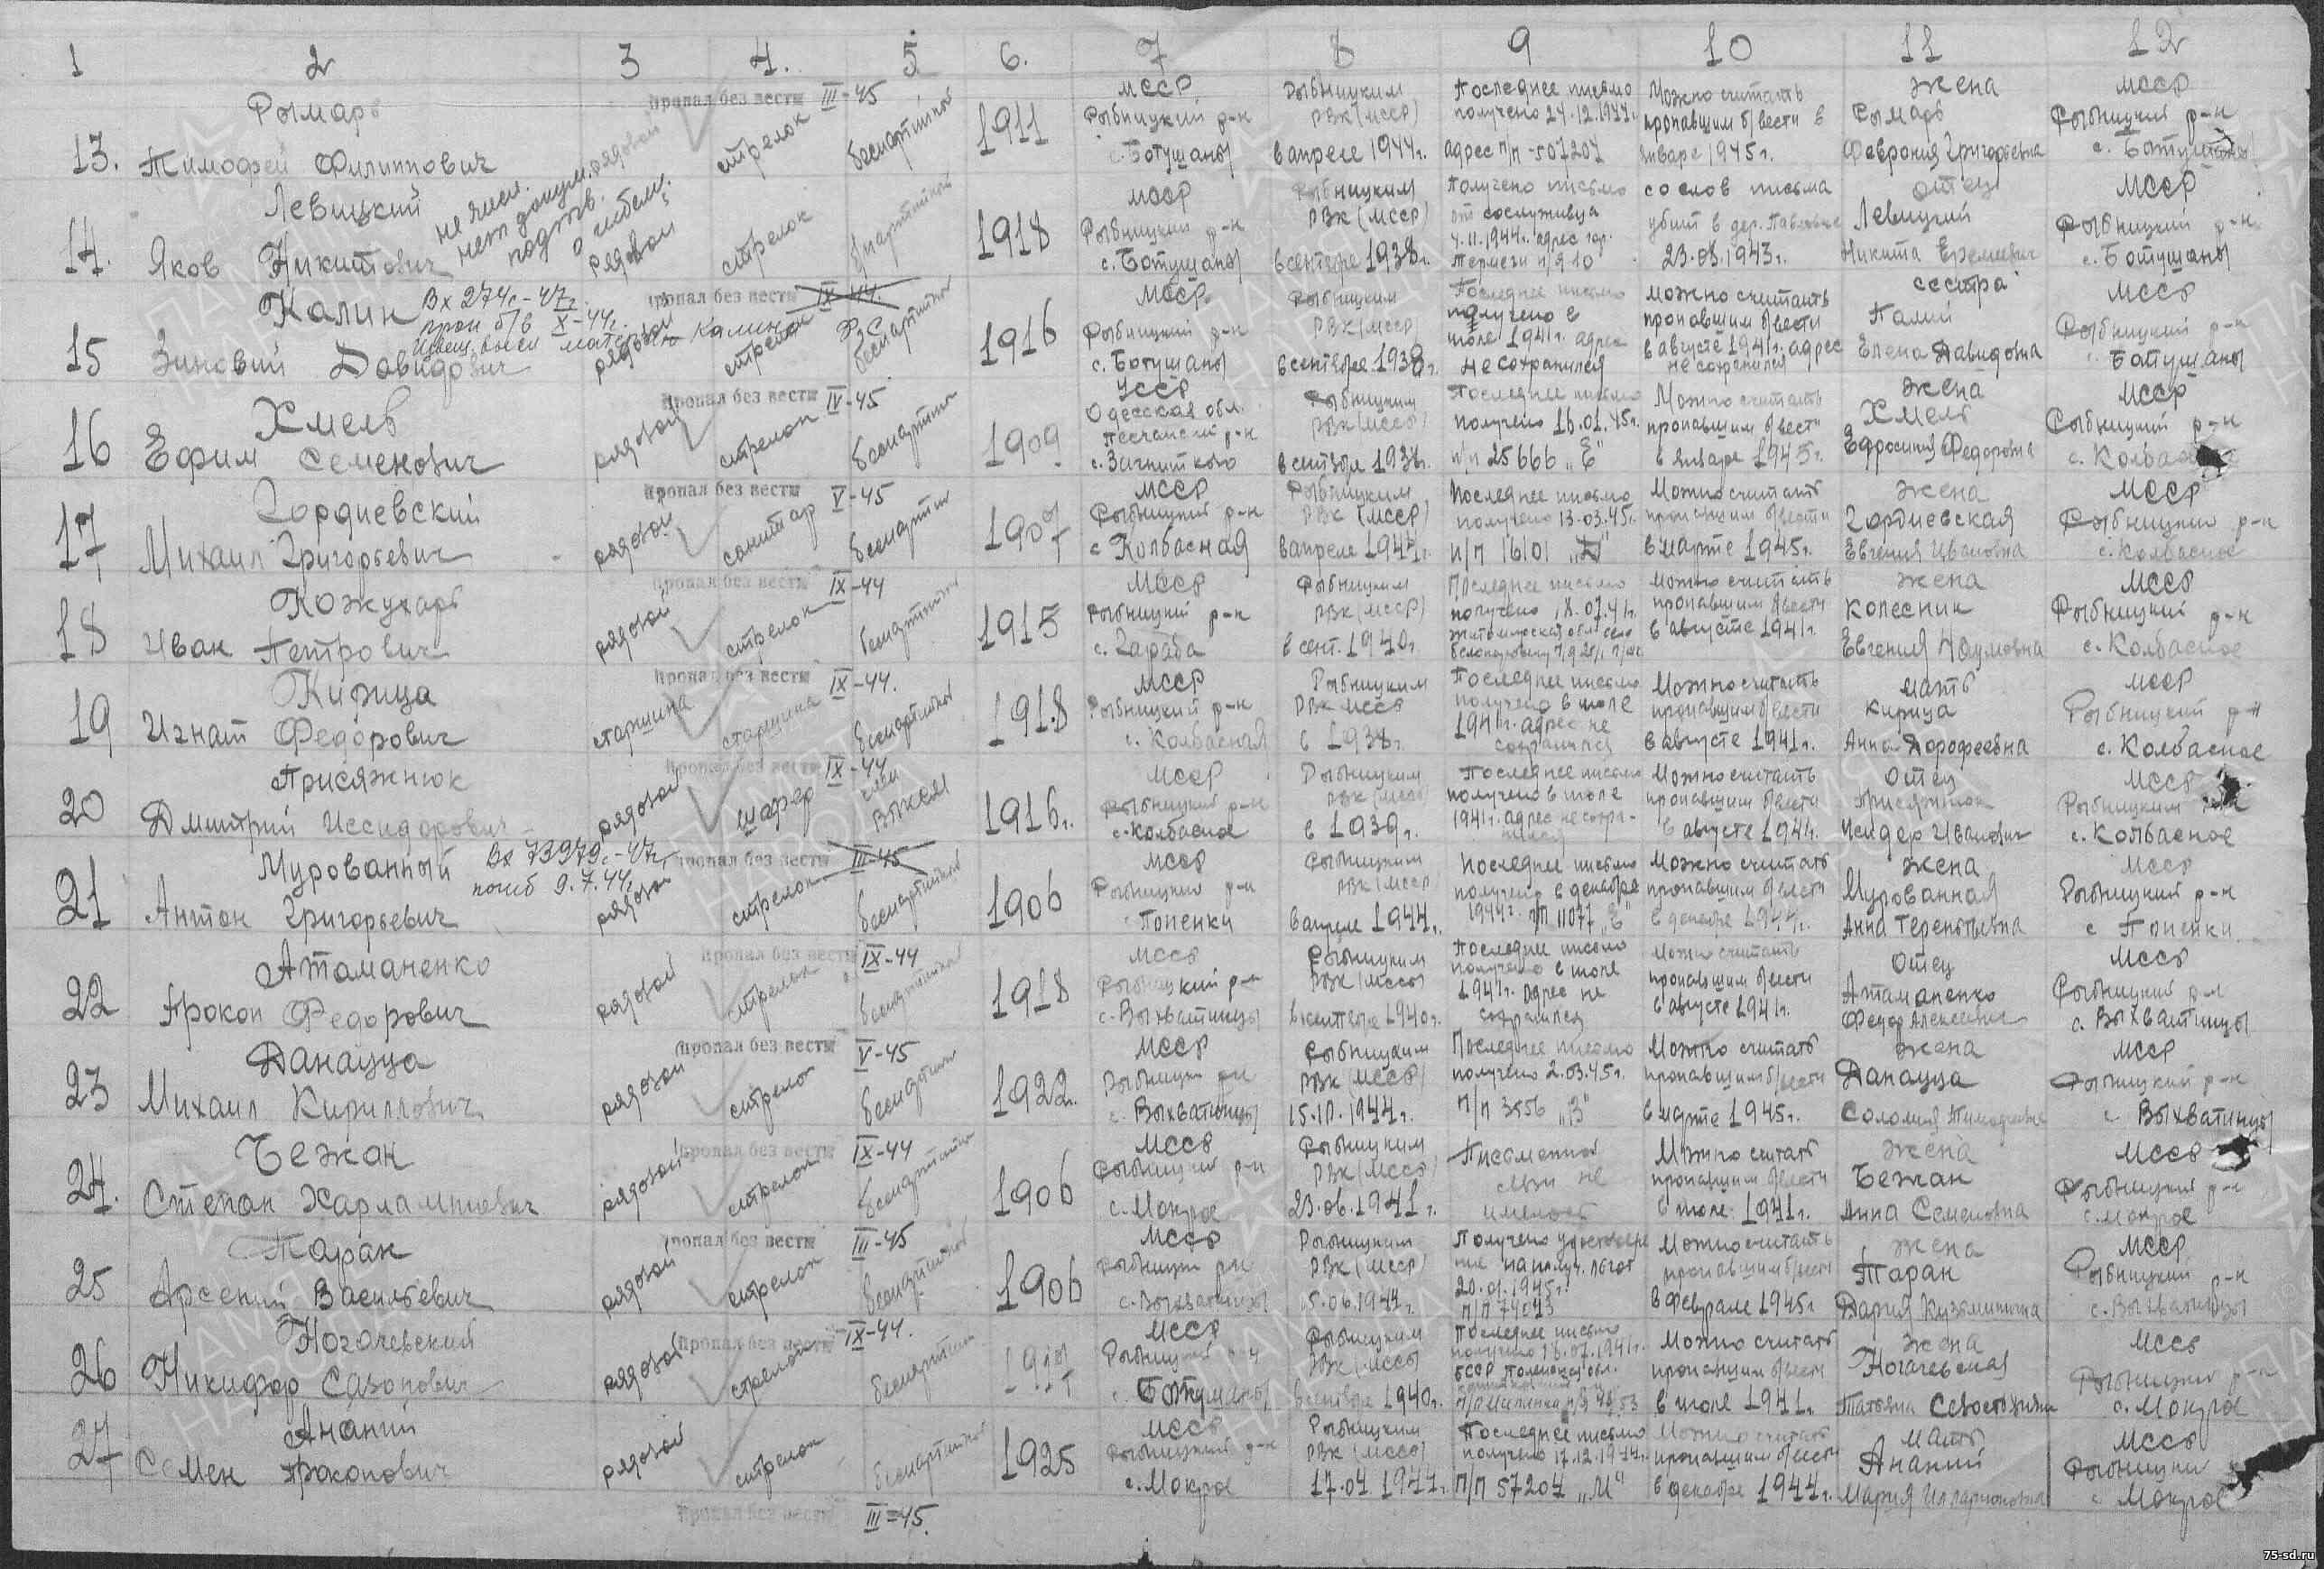 1 2 3 4. 5. 6. 7 8 9 10 11 12
13. Рымарь
Тимофей Филиппович
рядовой
Пропал без вести III-45
стрелок
беспартийный
1911
МССР
Рыбницкий р-н
с. Ботушаны
Рыбницким
РВК (МССР)
в апреле 1944г.
Последнее письмо
получено 24.12.1944г.
адрес п/п-507204
Можно считать
пропавшим б/вести в
январе 1945г.
жена
Рымарь
Феврония Григорьевна
МССР
Рыбницкий р-н
с. Ботушаны
14. Левицкий
Яков Никитович
нет докум.
подтв.
о гибели.
рядовой
стрелок
б/партийный
1918
МССР
Рыбницкий р-н
с. Ботушаны
Рыбницким
РВК (МССР)
в сентябре 1938г.
Получено письмо
от сослуживца
4.11.1944г. адрес гор.
Термези п/я 10
со слов письма
убит в дер.
23.08.1943г.
отец
Левицкий
Никита Еремеевич
МССР
Рыбницкий р-н
с. Ботушаны
15 Калин
Зиновий Давидович
Вх 274с-47г.
проп б/в X-44г.
рядовой
Пропал без вести IX-44.
стрелок
беспартийный
1916
МССР
Рыбницкий р-н
с. Ботушаны
Рыбницким
РВК (МССР)
в сентябре 1938г.
Последнее письмо
получено в
июле 1941г. адрес
не сохранился
Можно считать
пропавшим б/вести
в августе 1941г. адрес
не сохранился
сестра
Палий
Елена Давидовна
МССР
Рыбницкий р-н
с. Ботушаны
16 Хмель
Ефим Семенович
рядовой
Пропал без вести IV-45
стрелок
беспартийн
1909
УССР
Одесская обл.
Песчанский р-н
с. Загнитково
Рыбницким
РВК (МССР)
в сентябре 1938г.
Последнее письмо
получено 16.01.45г.
п/п 25666 „Е"
Можно считать
пропавшим б/вести
в январе 1945г.
жена
Хмель
Ефросиния Федоровна
МССР
Рыбницкий р-н
17 Гордиевский
Михаил Григорьевич
рядовой
Пропал без вести V-45
санитар
беспартийн
1907
МССР
Рыбницкий р-н
с Колбасная
Рыбницким
РВК (МССР)
в апреле 1944г.
Последнее письмо
получено 13.03.45г.
п/п 16101 „Д"
Можно считать
пропавшим б/вести
в марте 1945г.
жена
Гордиевская
Евгения Ивановна
МССР
Рыбницкий р-н
с. Колбасное
18 Кожухарь
Иван Петрович
рядовой
Пропал без вести IX-44
стрелок
беспартийный
1915
МССР
Рыбницкий р-н
с. Гараба
Рыбницким
РВК (МССР)
в сент. 1940г.
Последнее письмо
получено 18.07.41г.
Житомирская обл. село
Можно считать
пропавшим б/вести
в августе 1941г.
жена
Колесник
Евгения Наумовна
МССР
Рыбницкий р-н
с. Колбасное
19 Кирица
Игнат Федорович
старшина
Пропал без вести IX-44.
старшина
беспартийный
1918
МССР
Рыбницкий р-н
с. Колбасная
Рыбницким
РВК МССР
в 1938г.
Последнее письмо
получено в июле
1941г. адрес не
сохранился
Можно считать
пропавшим б/вести
в августе 1941г.
мать
Кирица
Анна Дорофеевна
МССР
Рыбницкий р-н
с. Колбасное
20 Присяжнюк
Дмитрий Иссидорович
рядовой
Пропал без вести IX-44
шофер
член
ВЛКСМ
1916г.
МССР
Рыбницкий р-н
с. Колбасное
Рыбницким
РВК (МССР)
в 1939г.
Последнее письмо
получено в июле
1941г. адрес не сохра-
нился
Можно считать
пропавшим б/вести
в августе 1944г.
отец
Присяжнюк
Исидор Иванович
МССР
Рыбницким
с. Колбасное
21 Мурованный
Антон Григорьевич
Вх 73979с-47г.
погиб 9.7.44г.
рядовой
Пропал без вести III-45
стрелок
беспартийный
1906
МССР
Рыбницкий р-н
с Попенки
Рыбницким
РВК (МССР
в апреле 1944г.
Последнее письмо
получено в декабре
1944г. п/п 11077 „Е"
Можно считать
пропавшим б/вести
в декабре 1944г.
жена
Мурованная
Анна Терентьевна
МССР
Рыбницкий р-н
с Попенки
22 Атаманенко
Прокоп Федорович
рядовой
Пропал без вести IX-44
стрелок
беспартийный
1918
МССР
Рыбницкий р-н
с. Выхватинцы
Рыбницким
РВК (МССР)
в сентябре 1940г.
Последнее письмо
получено в июле
1941г. адрес не
сохранился
Можно считать
пропавшим б/вести
в августе 1941г.
отец
Атаманенко
Федор Алексеевич
МССР
Рыбницкий р-н
с. Выхватинцы
23 Данауца
Михаил Кириллович
рядовой
Пропал без вести V-45
стрелок
беспартийн
1922г.
МССР
Рыбницкий р-н
с. Выхватинцы
Рыбницким
РВК (МССР)
15.10.1944г.
Последнее письмо
получено 2.03.45г.
п/п 3556 „В"
Можно считать
пропавшим б/вести
в марте 1945г.
жена
Данауца
Соломия Тимофеевна
МССР
Рыбницкий р-н
с. Выхватинцы
24. Бежан
Степан Харлампиевич
рядовой
Пропал без вести IX-44
стрелок
беспартийный
1906
МССР
Рыбницкий р-н
с. Мокрое
Рыбницким
РВК (МССР)
23.06.1941г.
Письменной
связи не
имелось
Можно считать
пропавшим б/вести
в июле 1941г.
жена
Бежан
Анна Семеновна
МССР
Рыбницкий р-н
с. Мокрое
25 Таран
Арсений Васильевич
рядовой
Пропал без вести III-45
стрелок
беспартийный
1906
МССР
Рыбницкий р-н
с. Выхватинцы
Рыбницким
РВК (МССР)
Получено удостовере
ние на получ. льгот
20.01.1945г.
п/п 74043
Можно считать
пропавшим б/вести
в феврале 1945г
жена
Таран
Дария Кузьминична
МССР
Рыбницкий р-н
с. Выхватинцы
26 Ногачевский
Никифор Сазонович
рядовой
Пропал без вести IX-44.
стрелок
беспартийн
МССР
Рыбницкий р-н
с. Ботушаны
Рыбницким
РВК (МССР)
в сентябре 1940г.
Последнее письмо
получено 18.07.1941г.
Можно считать
пропавшим б/вести
в июле 1941г.
жена
Ногачевская
Татьяна
МССР
Рыбницкий р-н
с. Мокрое
27 Ананий
Семен Прокопович
рядовой
стрелок
беспартийный
Пропал без вести III-45.
1925
МССР
Рыбницкий р-н
с. Мокрое
Рыбницким
РВК (МССР)
17.04 1944г.
Последнее письмо
получено 17.12.1944г.
п/п 57204 „И"
Можно считать
пропавшим б/вести
в декабре 1944г.
мать
Ананий
Мария Илларионовна
МССР
Рыбницкий
с Мокрое
75-sd.ru